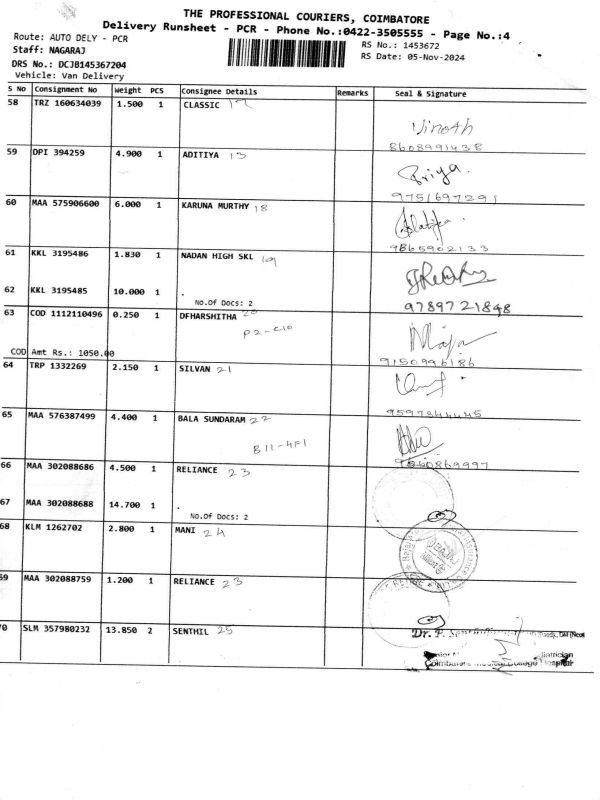 THE PROFESSIONAL COURIERS, COIMBATORE
Delivery Runsheet - PCR - Phone No.:0422-3505555 - Page No.:4
Route: AUTO DELY - PCR
RS No.: 1453672
Staff: NAGARAJ
RS Date: 05-Nov-2024
DRS No.: DCJB145367204
Vehicle: Van Delivery
S No Consignment No Weight PCS Consignee Details Remarks Seal & Signature
58 TRZ 160634039 1.500 1 CLASSIC 17
Vinoth
8608991438
59 DPI 394259 4.900 1 ADITIYA 13
Priya.
9751697291
60 MAA 575906600 6.000 1 KARUNA MURTHY 18
9865902133
61 KKL 3195486 1.830 1 NADAN HIGH SKL 19
62 KKL 3195485 10.000 1 .
No.Of Docs: 2
9789721848
63 COD 1112110496 0.250 1 DFHARSHITHA 20
P2-C10
COD Amt Rs.: 1050.00
9150996186
64 TRP 1332269 2.150 1 SILVAN 21
9597844445
65 MAA 576387499 4.400 1 BALA SUNDARAM 22
B11-4F1
66 MAA 302088686 4.500 1 RELIANCE 23
67 MAA 302088688 14.700 1 .
No.Of Docs: 2
68 KLM 1262702 2.800 1 MANI 24
69 MAA 302088759 1.200 1 RELIANCE 23
70 SLM 357980232 13.850 2 SENTHIL 25
Dr. P.
Coimbatore Medical College Hospital